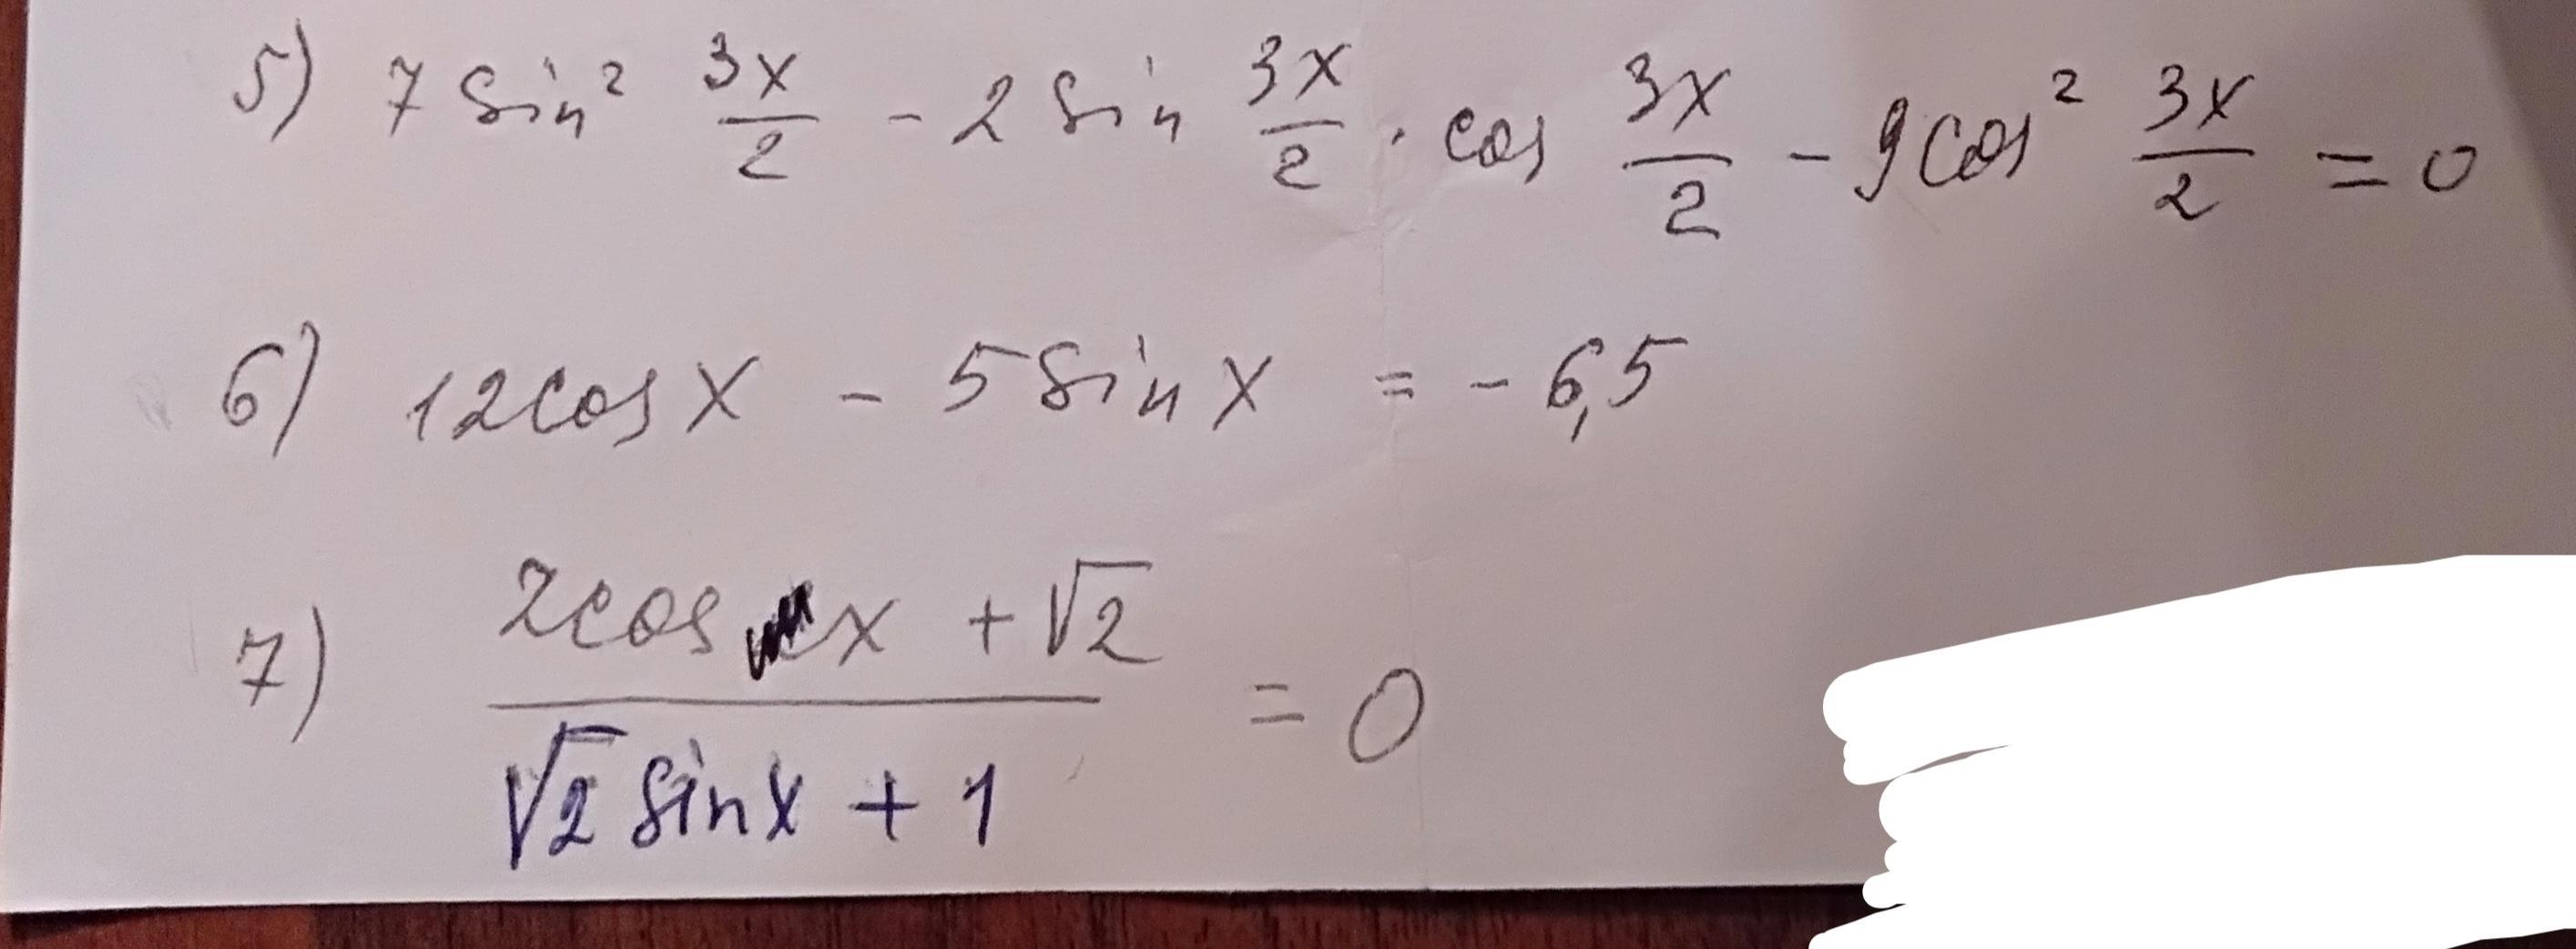 5) 7 sin² 3x/2 - 2 sin 3x/2 · cos 3x/2 - 9cos² 3x/2 = 0
6) 12cos x - 5 sin x = - 6,5
7) (2cos x + √2)/(√2 sin x + 1) = 0